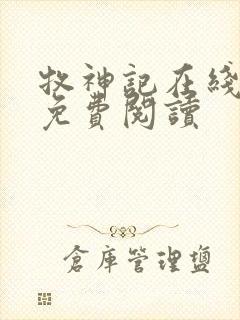 牧神記在綫
免費閱讀
倉庫管理鹽